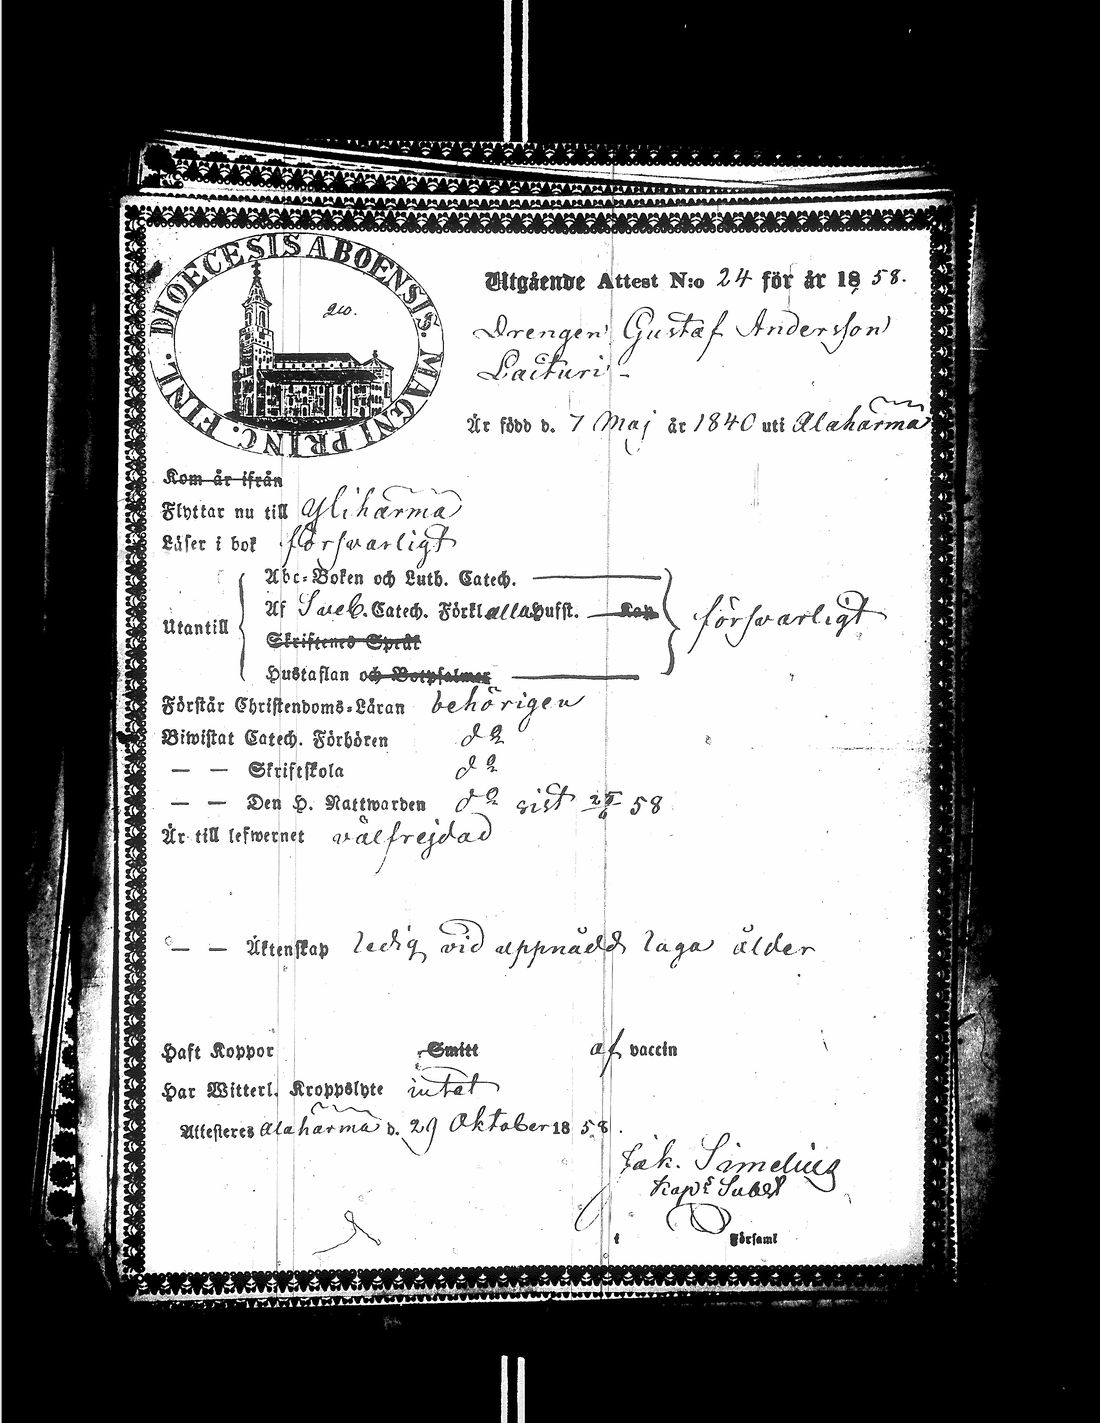 DIOECESIS ABOENSIS. MAGNI PRINC. FINL.
Utgående Attest N:o 24 för år 1858.
Drengen Gustaf Andersson
Lacturi -
Är född d. 7 Maj år 1840 uti Alahärmä
Kom år ifrån
Flyttar nu till Ylihärmä
Läser i bok försvarligt
Utantill
Abc-Boken och Luth. Catech.
Af Sveb. Catech. Förkl alla Hufst. Kap
Skriftenes Språk
Hustaflan och Botpsalmer
försvarligt
Förstår Christendoms-Läran behörigen
Biwistat Catech. Förhören do
— — Skriftskola do
— — Den H. Nattwarden do sist 58
Är till lefwernet välfrejdad
— — Äktenskap ledig vid uppnådd laga ålder
Haft Koppor Smitt af vaccin
Har Witterl. Kroppslyte intet
Attesteras Alahärmä d. 29 Oktober 1858.
Jak. Simelius
Kap:s Subst
i Församl